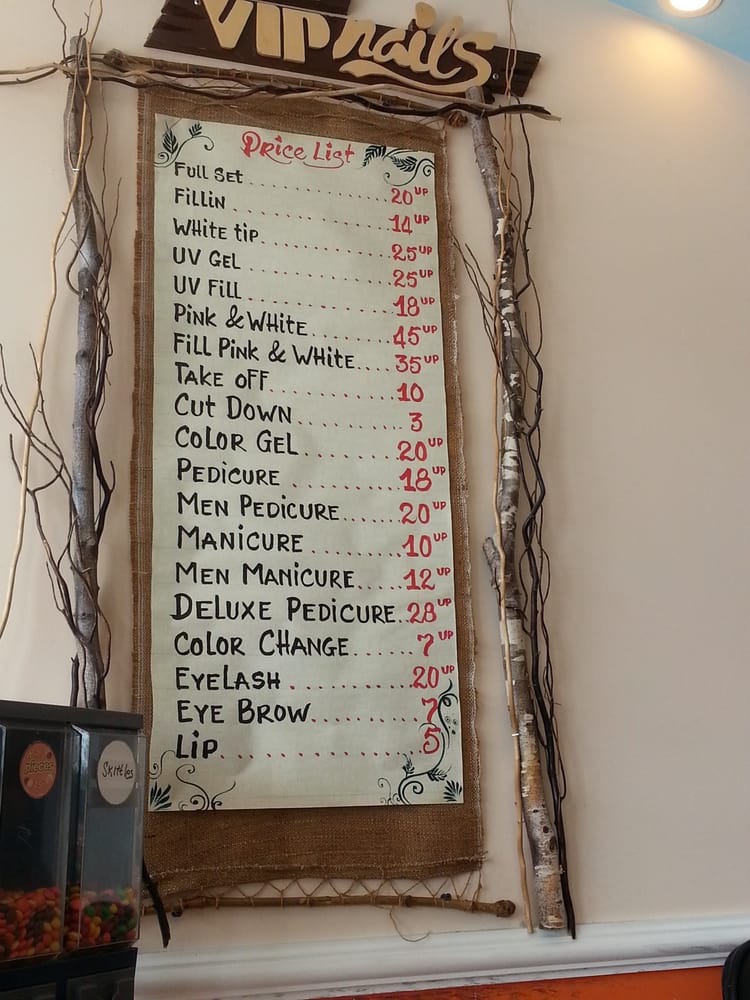 VIP nails
Price List
Full Set 20 UP
Fillin 14 UP
White tip 25 UP
UV Gel 25 UP
UV Fill 18 UP
Pink & White 45 UP
Fill Pink & White 35 UP
Take off 10
Cut Down 3
Color Gel 20 UP
Pedicure 18 UP
Men Pedicure 20 UP
Manicure 10 UP
Men Manicure 12 UP
Deluxe Pedicure 28 UP
Color Change 7 UP
Eyelash 20 UP
Eye Brow 7
Lip 5
Skittles